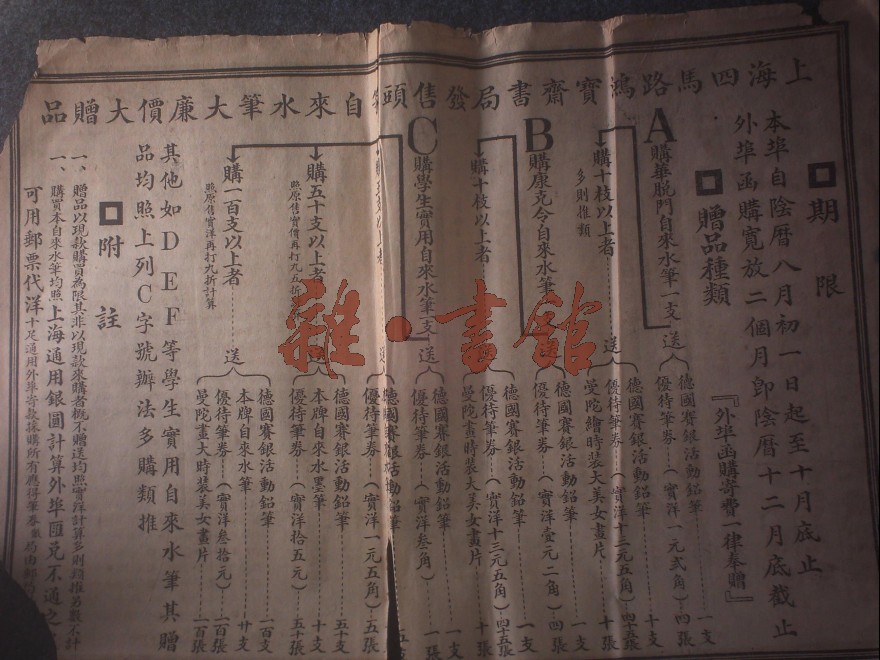 上海四馬路鴻寶齋書局發售頭等自來水筆大廉價大贈品
期限
本埠自陰曆八月初一日起至十月底止
外埠函購寬放二個月卽陰曆十二月底截止
『外埠函購寄費一律奉贈』
贈品種類
A 購華脫門自來水筆一支 送
德國賽銀活動鉛筆 一支
優待筆券(實洋一元弍角) 四張
購十枝以上者 送
多則推類
德國賽銀活動鉛筆 十支
優待筆券(實洋十三元五角) 四十五張
曼陀繪時裝大美女畫片 十張
B 購康克令自來水筆 送
德國賽銀活動鉛筆 一支
優待筆券(實洋壹元二角) 四張
購十枝以上者 送
德國賽銀活動鉛筆 一支
優待筆券(實洋十三元五角) 四十五張
曼陀畫時裝大美女畫片 十張
C 購學生實用自來水筆一支 送
德國賽銀活動鉛筆 一支
優待筆券(實洋叁角) 一張
送
德國賽銀活動鉛筆
優待筆券(實洋一元五角) 五張
購五十支以上者
照原售實價再打九五折
德國賽銀活動鉛筆 五十支
本牌自來水墨筆 十支
優待筆券(實洋拾五元) 五十張
購一百支以上者 送
照原售實洋再打九折計算
德國賽銀活動鉛筆 一百支
本牌自來水筆 廿支
優待筆券(實洋叁拾元) 一百張
曼陀畫大時裝美女畫片 一百張
其他如DEF等學生實用自來水筆其贈
品均照上列C字號辦法多購類推
附註
一、贈品以現款購買為限其非以現款來購者概不贈送均照實洋計算多則類推另數不計
一、購買本自來水筆均照上海通用銀圓計算外埠匯兌不通之
可用郵票代洋十足通用外埠寄款採購所有應得筆券
雜·書館